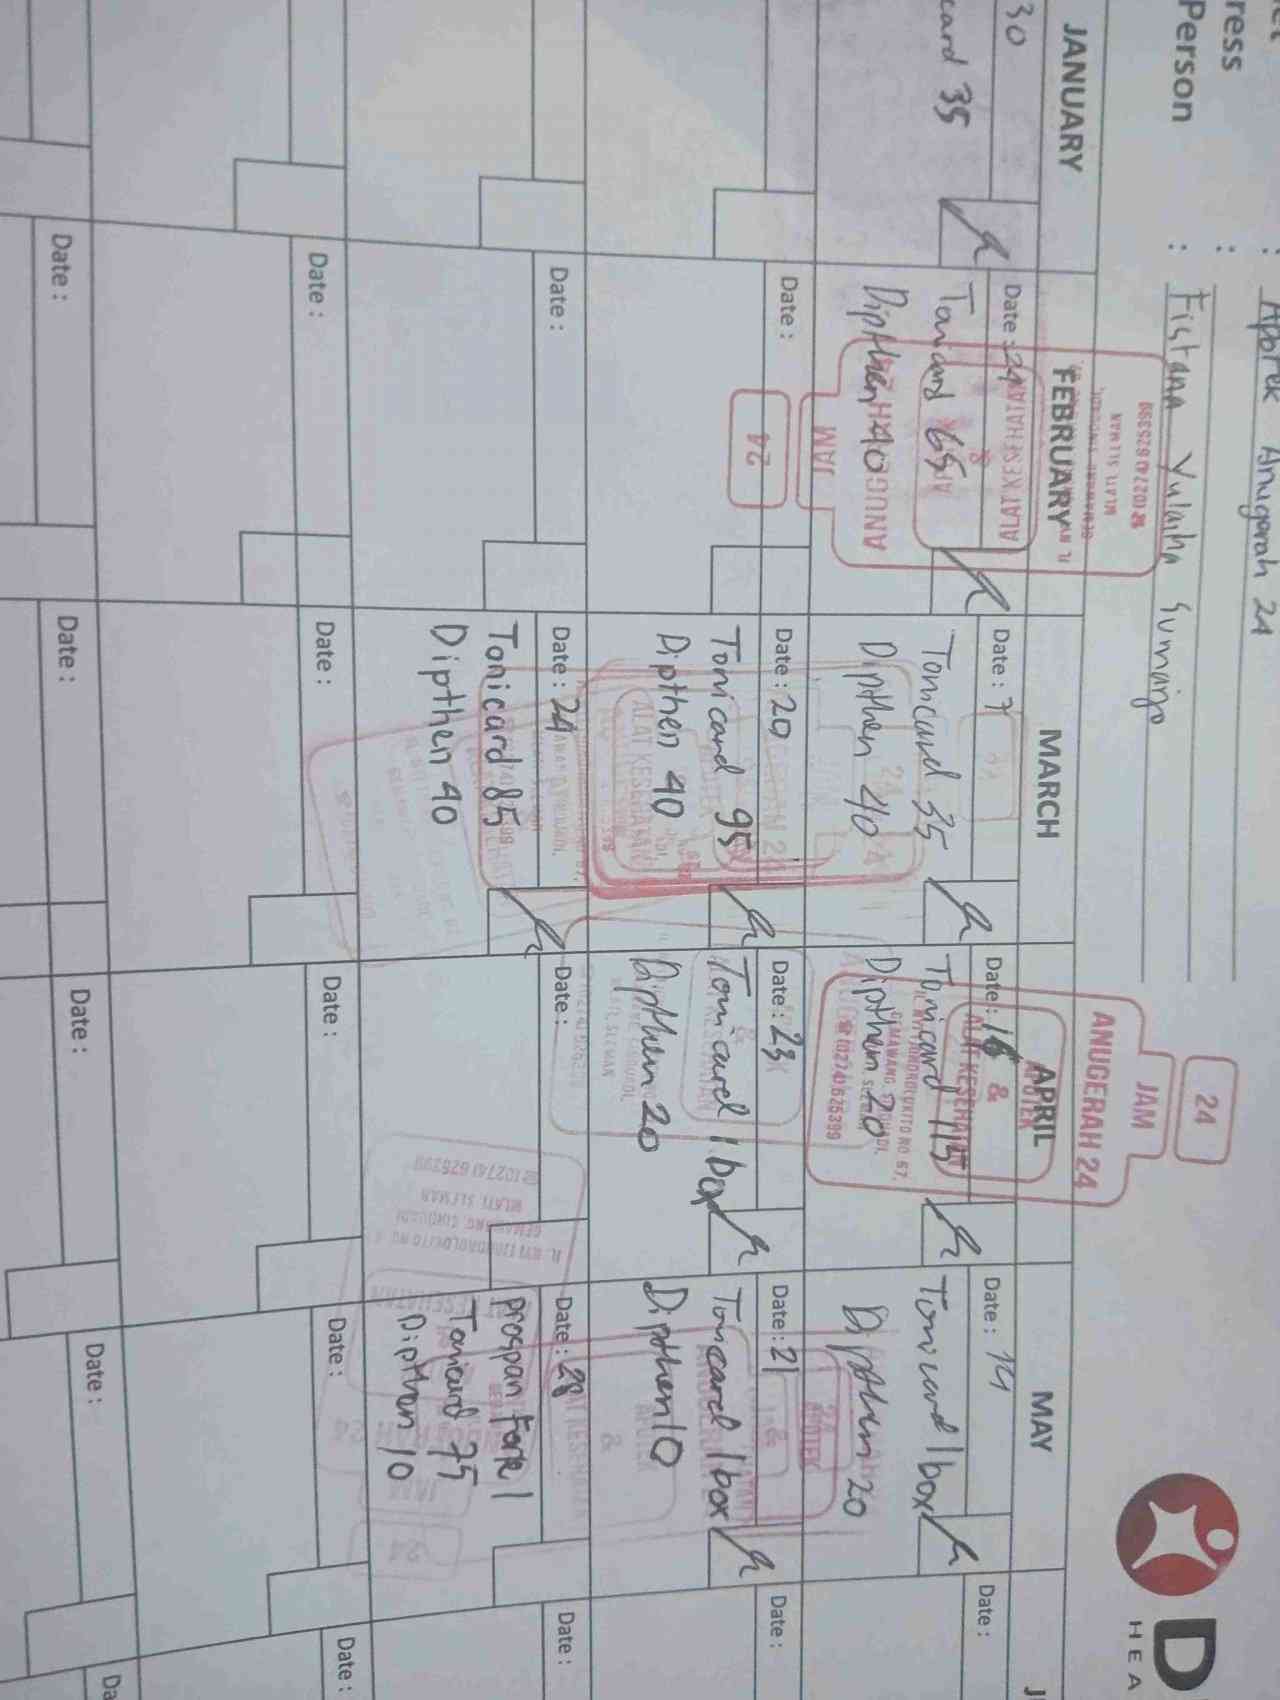 ress :
Person :
Apotek Anugerah 24
Fistana Yulaiha Sumarjo
D
HEA
JANUARY
FEBRUARY
MARCH
APRIL
MAY
J
30
card 35
Date : 24
Tonicard 65
Dipthen 40
Date : 7
Tonicard 35
Dipthen 40
Date : 16
Tonicard 115
Dipthen 20
Date : 14
Tonicard 1 box
Dipthen 20
Date :
Date :
Date : 20
Tonicard 95
Dipthen 40
Date : 23
Tonicard 1 box
Dipthen 20
Date : 21
Tonicard 1 box
Dipthen 10
Date :
Date :
Date : 24
Tonicard 85
Dipthen 40
Date :
Date : 28
prospan Forte 1
Tonicard 75
Dipthen 10
Date :
Date :
Date :
Date :
Date :
Date :
Date :
Date :
Date :
Date :
Da
24
JAM
ANUGERAH 24
APOTEK
&
ALAT KESEHATAN
GEMAWANG SINDUADI,
☎(0274) 625399
24
JAM
ANUGERAH
ALAT KESEHATAN
MLATI SLEMAN
☎(0274) 625399